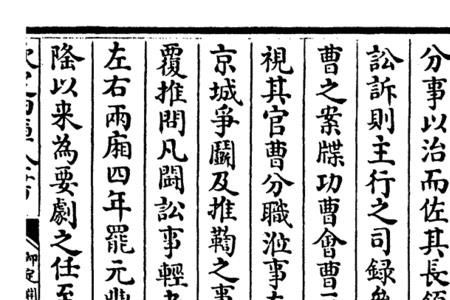 分事以治而佐其長
訟訴則主行之司録
曹之案牒功曹會曹
視其官曹分職涖事
京城爭鬬及推鞫之事
覆推問凡鬬訟事輕
左右兩廂四年罷元
隆以来為要劇之任至